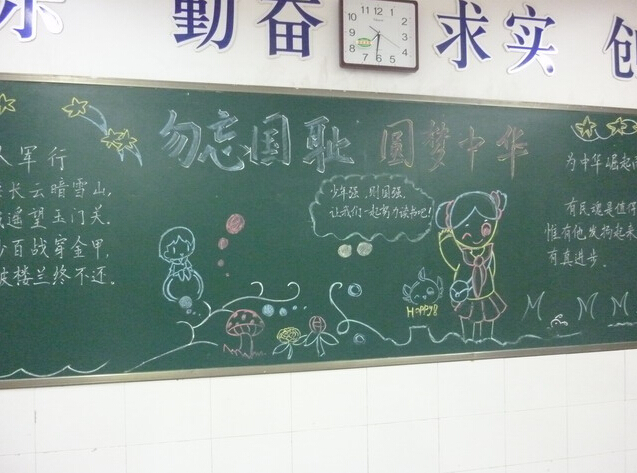 勤奋 求实 创
勿忘国耻 圆梦中华
军行
长云暗雪山,
遥望玉门关.
百战穿金甲,
楼兰终不还.
少年强,则国强.
让我们一起努力读书吧!
Happy
为中华崛起
有民魂是值得
惟有他发扬起来
有真进步.